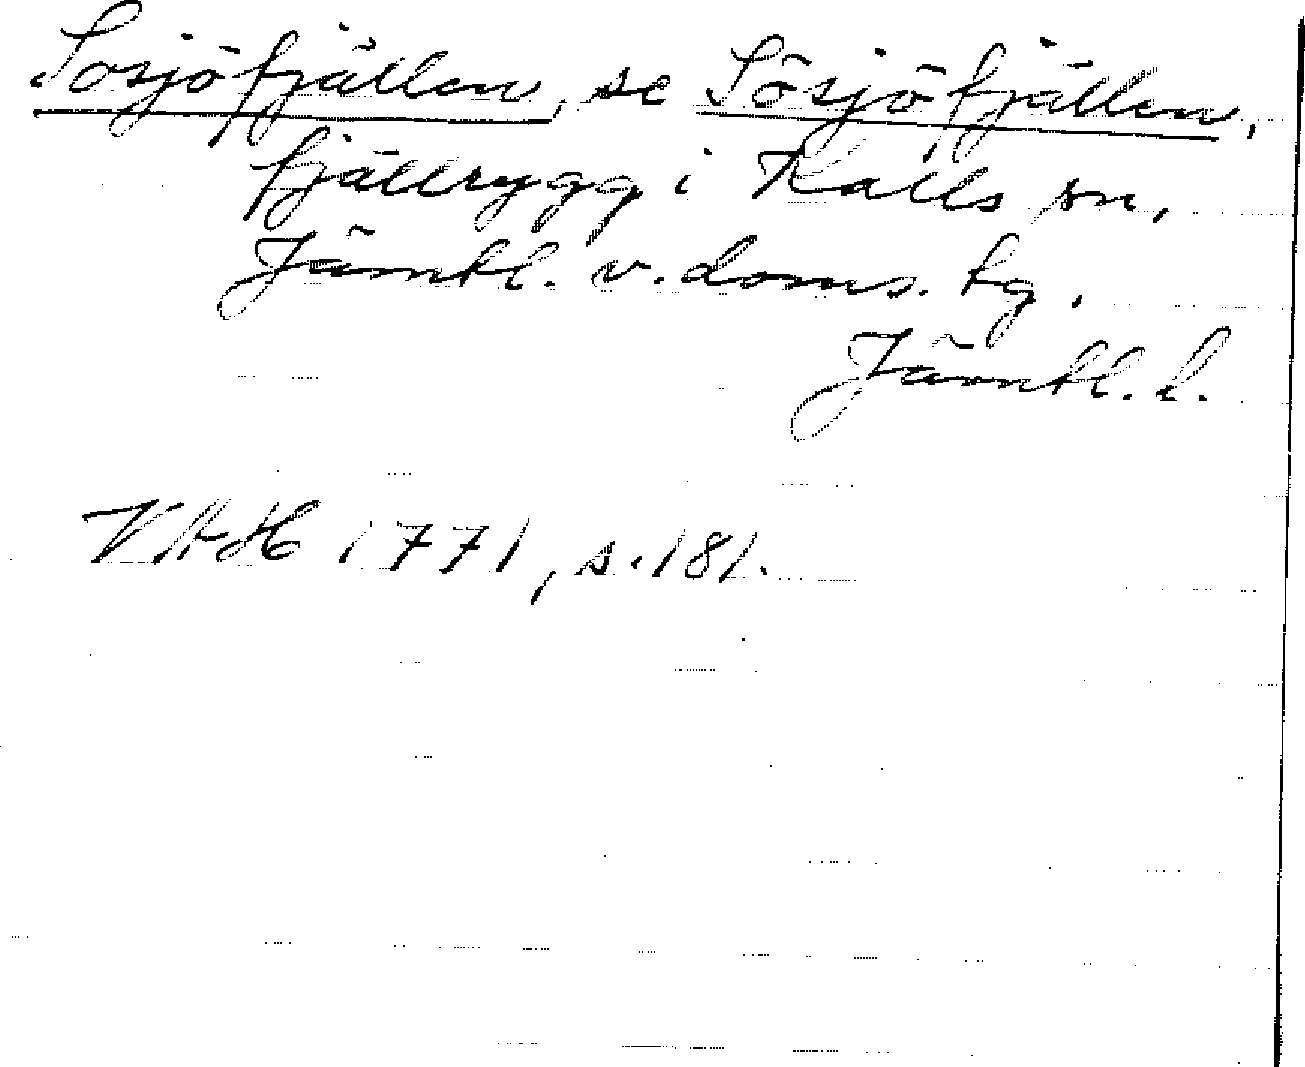 Sosjöfjällen, se Sösjöfjällen,
fjällrygg i Kalls sn,
Jämtl. v. doms. tg.
Jämtl. l.
VAH 1771, s. 181.